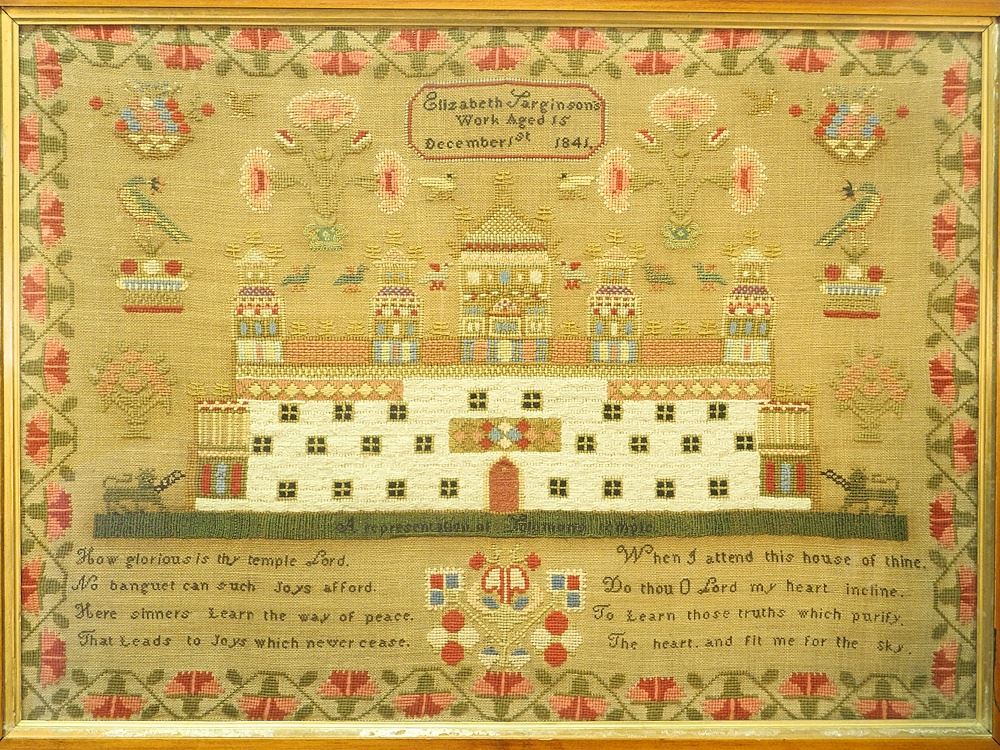 Elizabeth Sarginson's
Work Aged 15
December 1st 1841.
A representation of Solomons temple
How glorious is thy temple Lord.
No banquet can such Joys afford.
Here sinners Learn the way of peace.
That Leads to Joys which never cease.
When I attend this house of thine.
Do thou O Lord my heart incline.
To Learn those truths which purify.
The heart. and fit me for the sky.